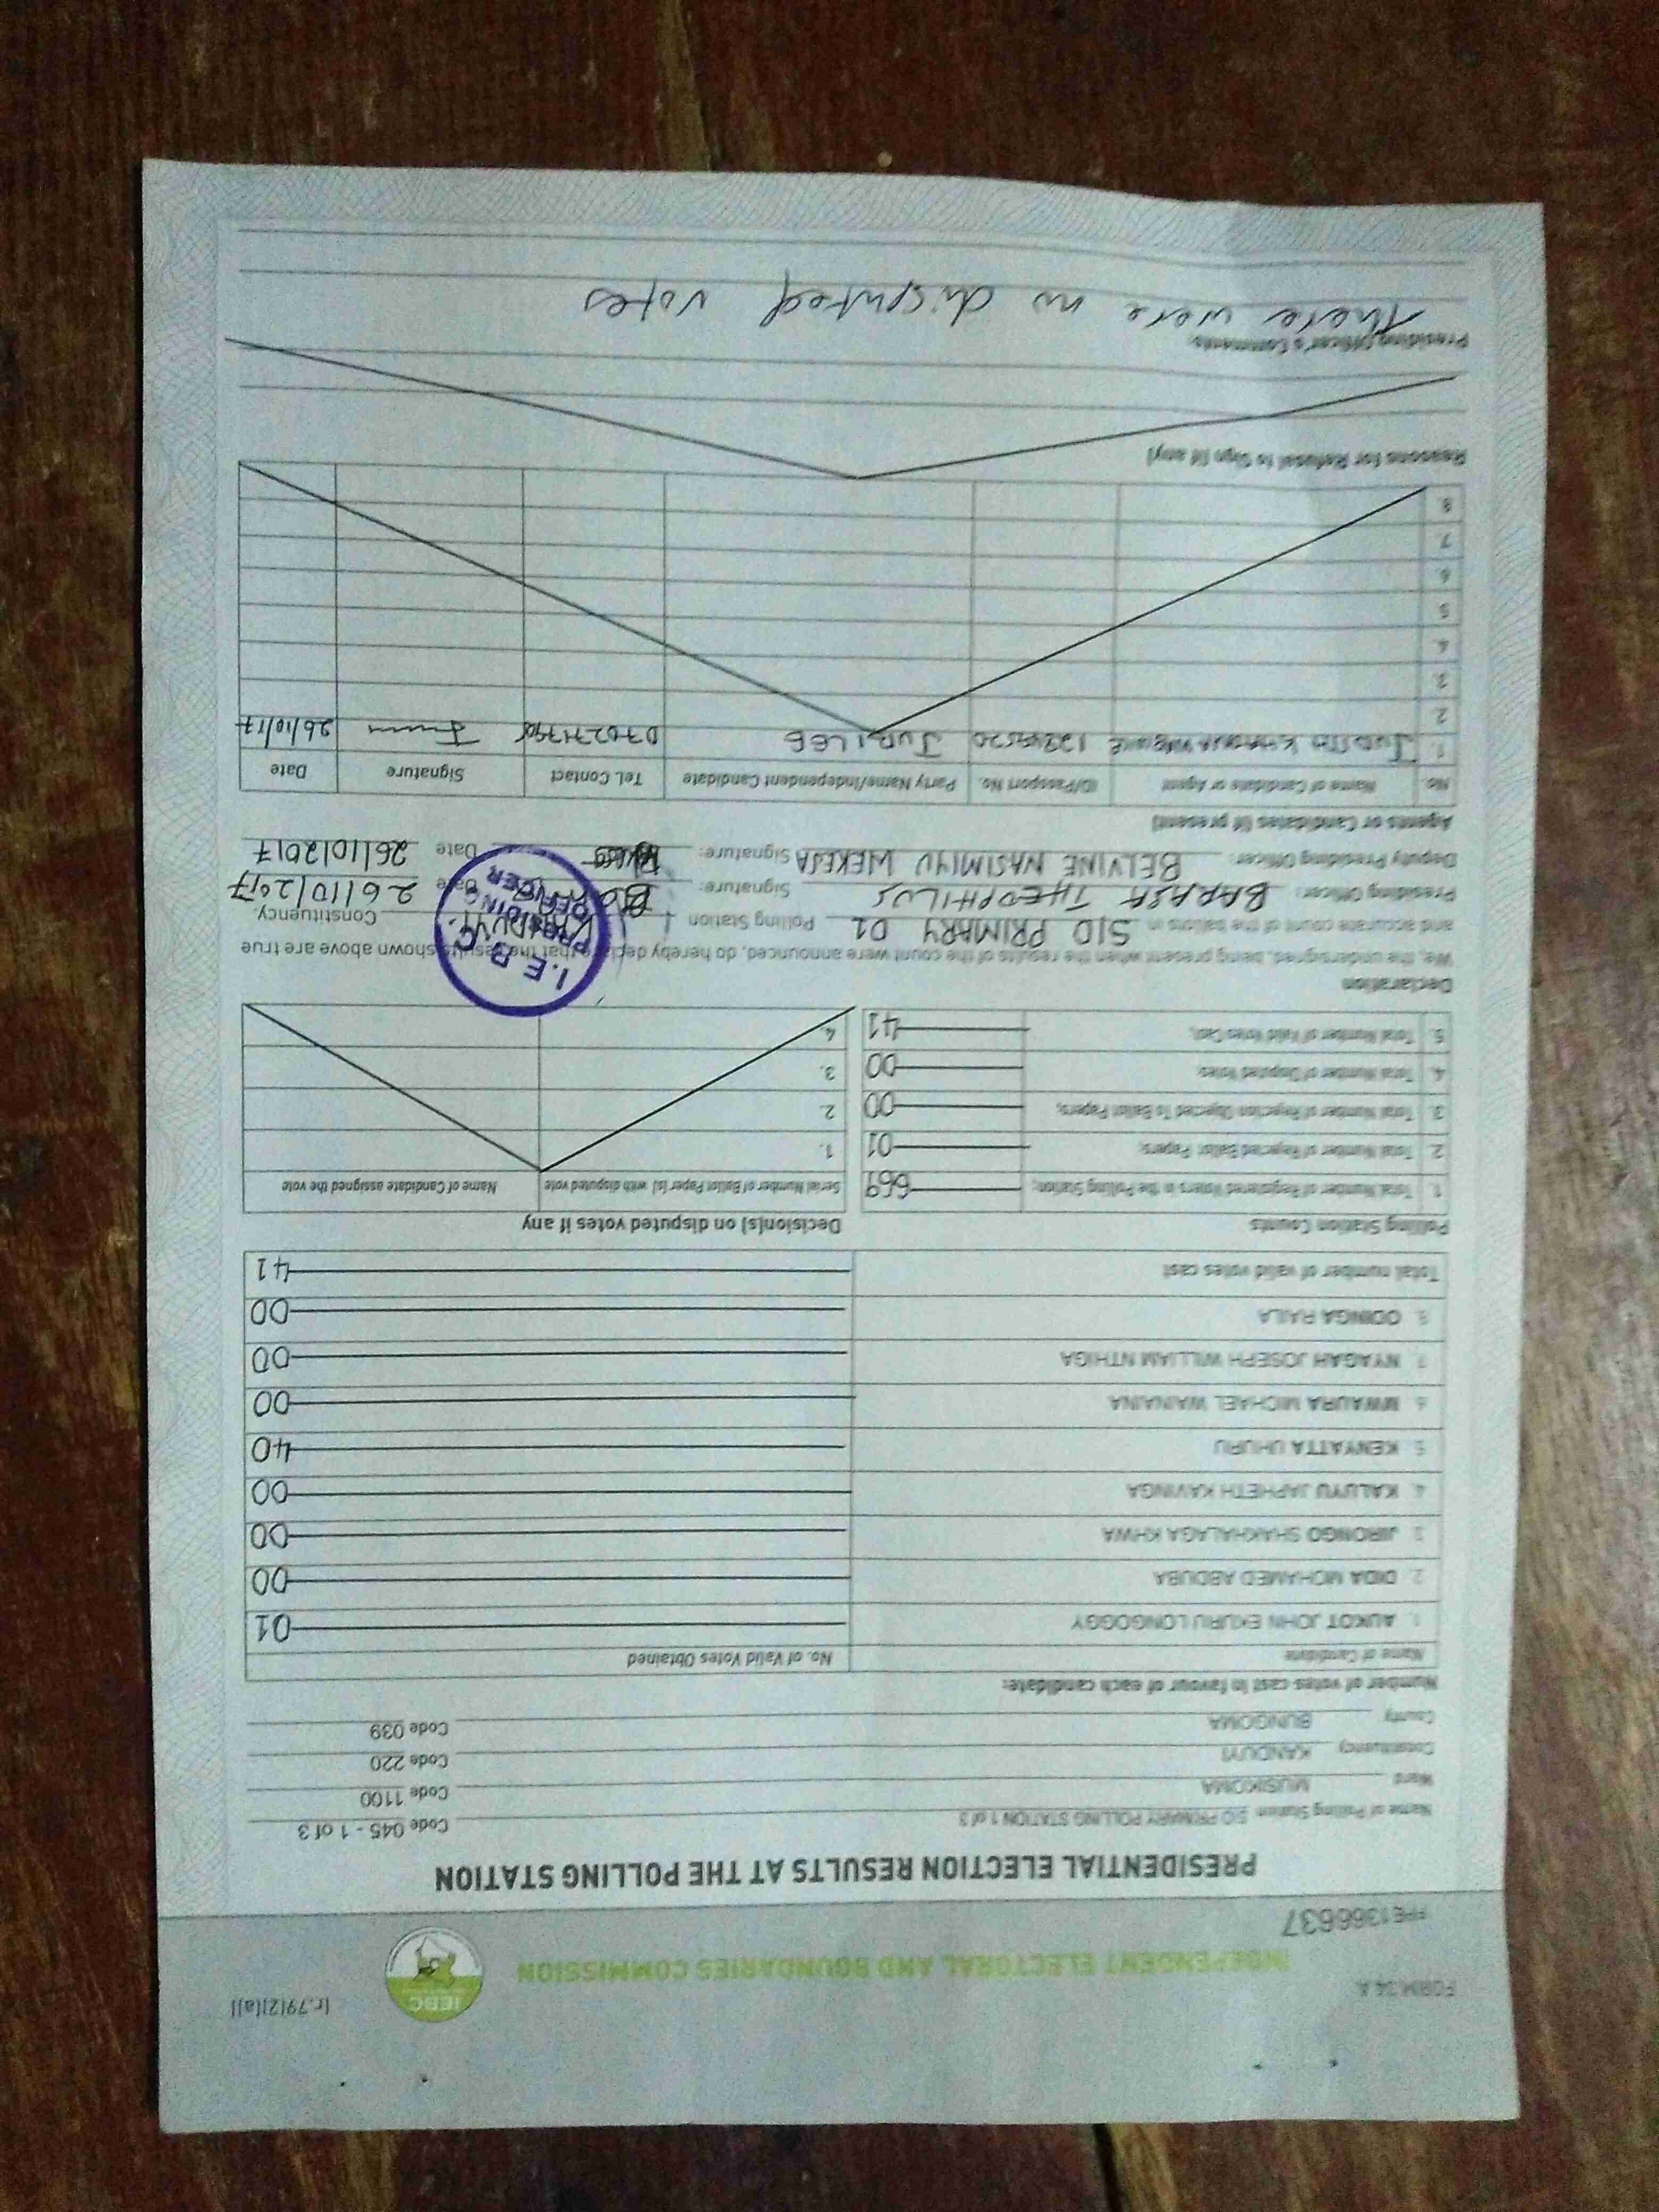 FORM 34 A
[r.79[2][a]]
IEBC
INDEPENDENT ELECTORAL AND BOUNDARIES COMMISSION
PPE1366637
PRESIDENTIAL ELECTION RESULTS AT THE POLLING STATION
Name of Polling Station SIO PRIMARY POLLING STATION 1 of 3 Code 045 - 1 of 3
Ward MUSIKOMA Code 1100
Constituency KANDUYI Code 220
County BUNGOMA Code 039
Number of votes cast in favour of each candidate:
Name of Candidate No. of Valid Votes Obtained
1. AUKOT JOHN EKURU LONGOGGY 01
2. DIDA MOHAMED ABDUBA 00
3. JIRONGO SHAKHALAGA KHWA 00
4. KALUYU JAPHETH KAVINGA 00
5. KENYATTA UHURU 40
6. MWAURA MICHAEL WAINAINA 00
7. NYAGAH JOSEPH WILLIAM NTHIGA 00
8. ODINGA RAILA 00
Total number of valid votes cast 41
Polling Station Counts
1. Total Number of Registered Voters in the Polling Station; 669
2. Total Number of Rejected Ballot Papers; 01
3. Total Number of Rejection Objected To Ballot Papers; 00
4. Total Number of Disputed Votes; 00
5. Total Number of Valid Votes Cast; 41
Decision[s] on disputed votes if any
Serial Number of Ballot Paper [s] with disputed vote Name of Candidate assigned the vote
1.
2.
3.
4.
Declaration
We, the undersigned, being present when the results of the count were announced, do hereby declare that the results shown above are true
and accurate count of the ballots in SIO PRIMARY 01 Polling Station KANDUYI Constituency.
Presiding Officer: BARASA THEOPHILUS Signature: Date 26/10/2017
Deputy Presiding Officer: BELVINE NASIMIYU WEKESA Signature: Date 26/10/2017
I.E.B.C.
PRESIDING
OFFICER
Agents or Candidates (if present)
No. Name of Candidate or Agent ID/Passport No. Party Name/Independent Candidate Tel. Contact Signature Date
1. JUDITH JUBILEE 26/10/17
2
3.
4.
5
6
7
8
Reasons for Refusal to Sign (if any)
Presiding Officer's Comments:
There were no disputed votes